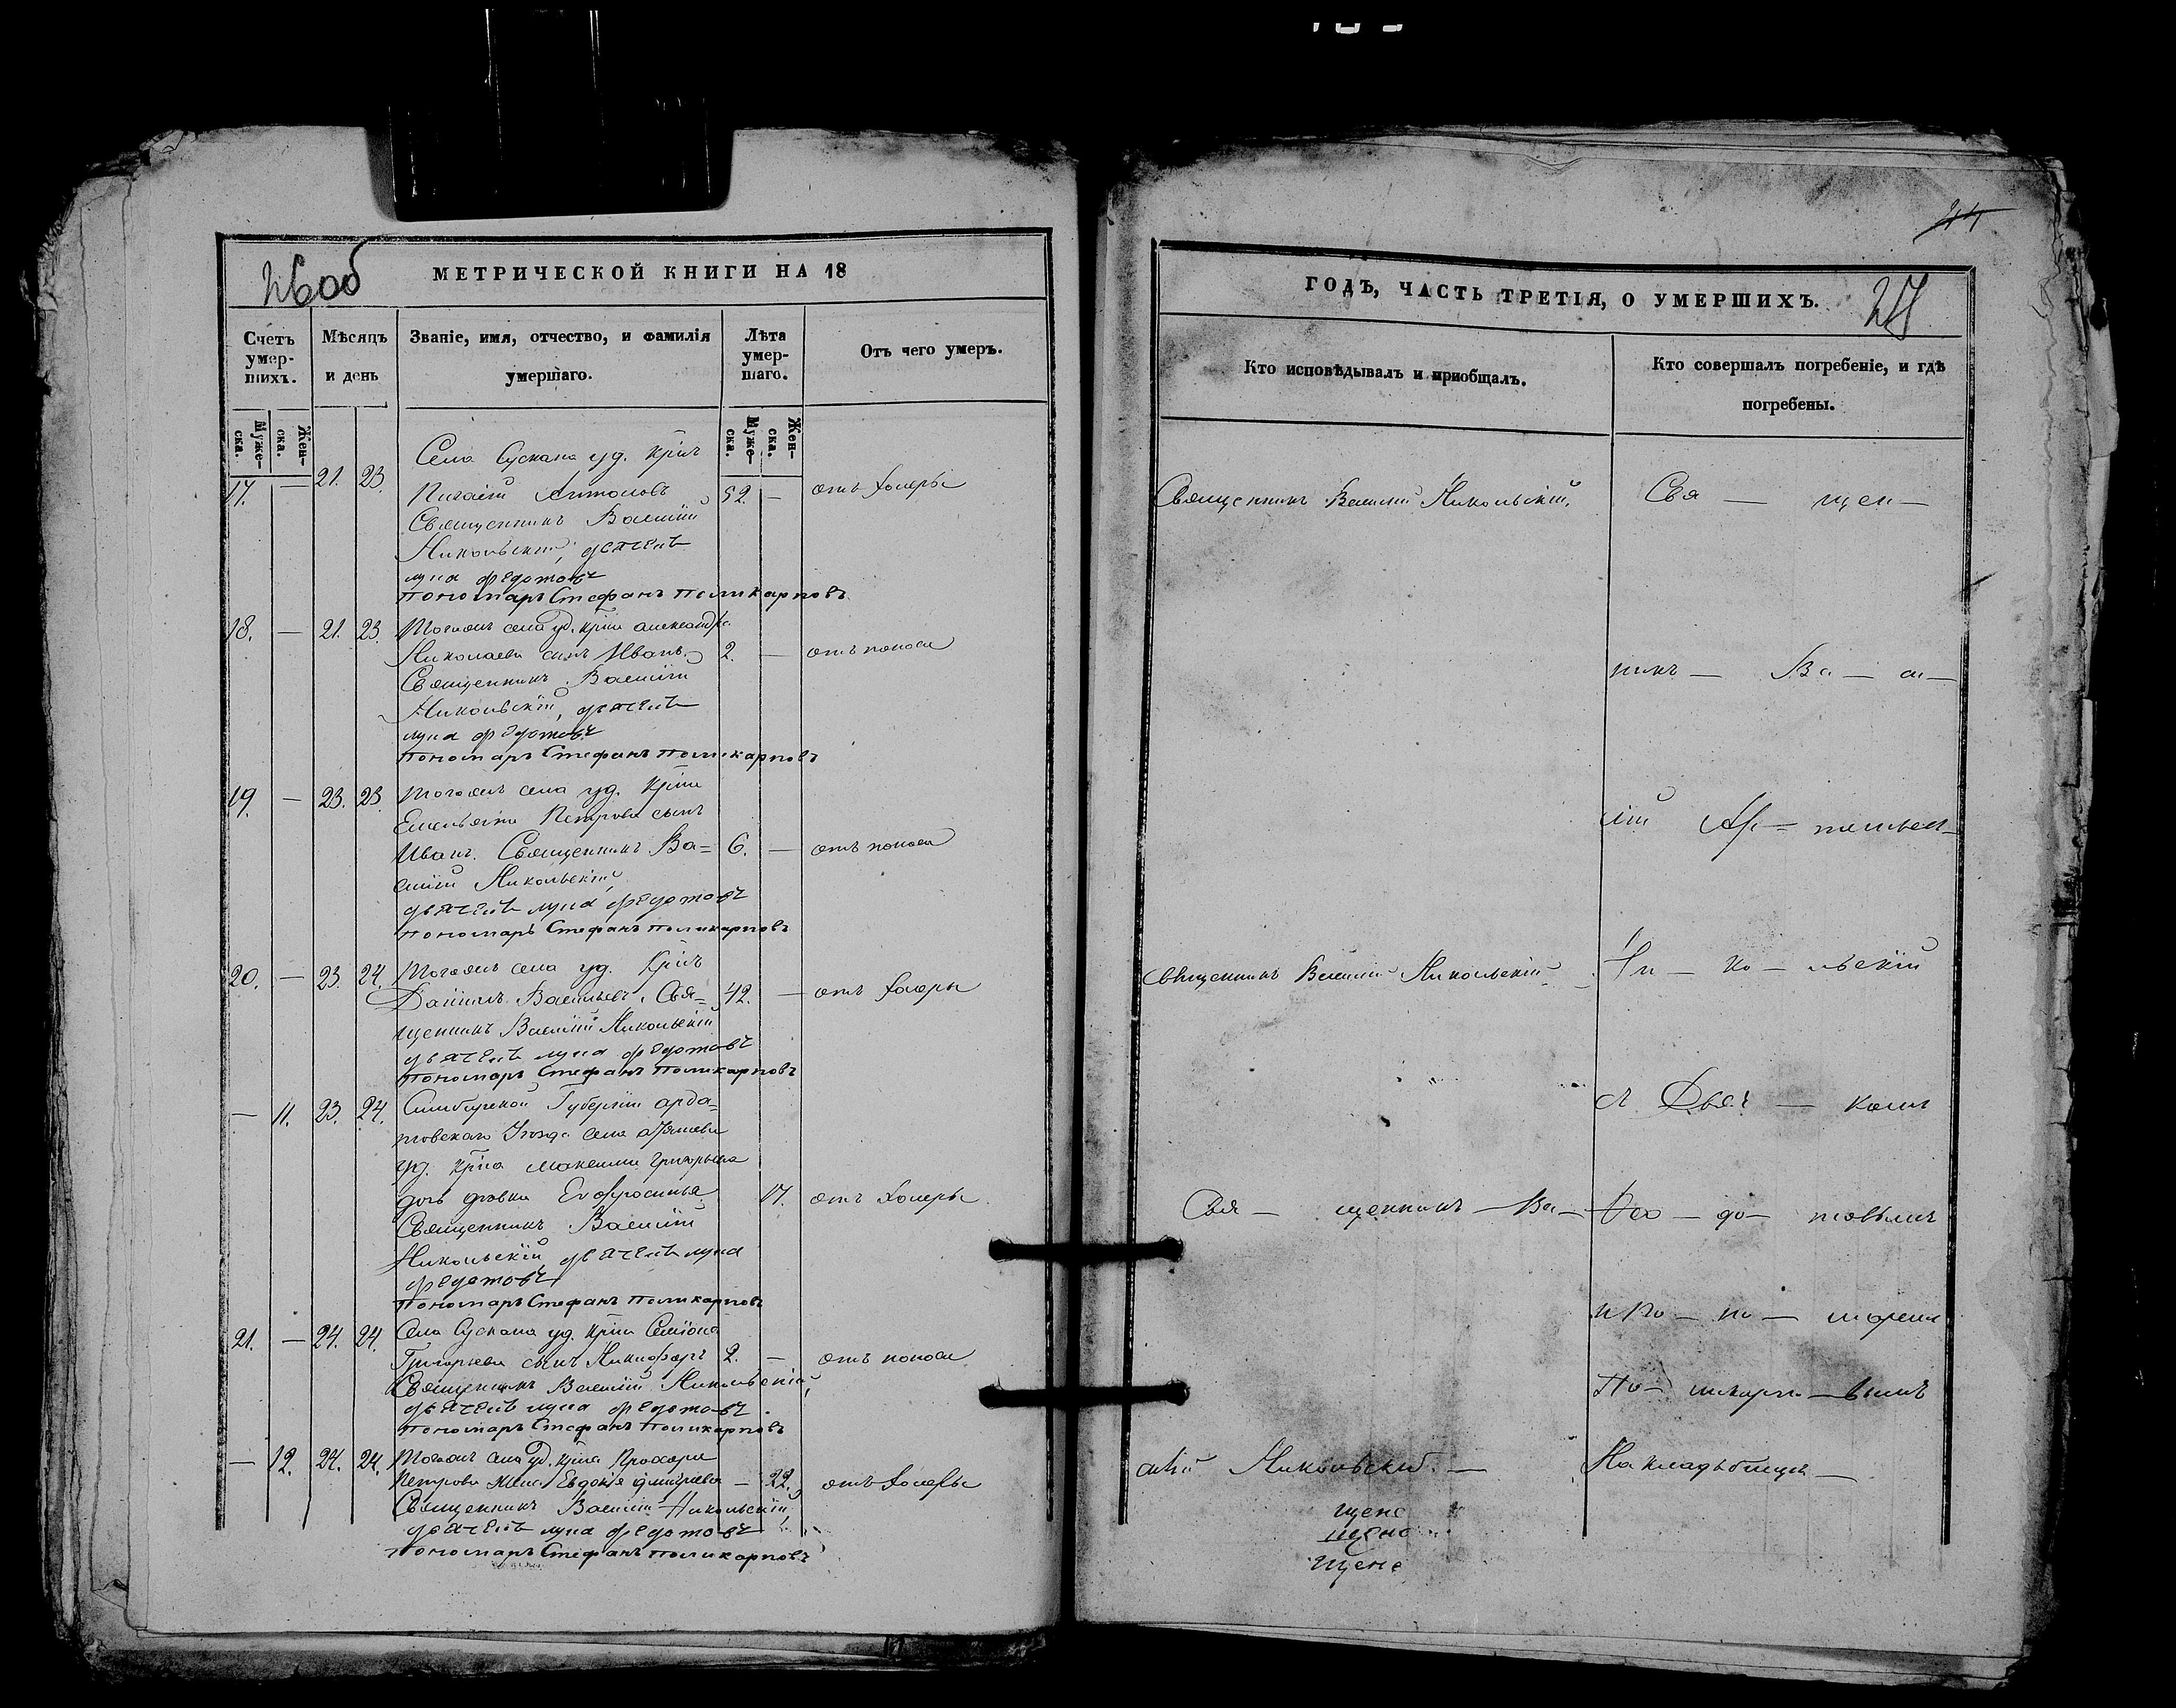 26об
МЕТРИЧЕСКОЙ КНИГИ НА 18
Счетъ умер-шихъ.
Мѣсяцъ и день
Званіе, имя, отчество, и фамилія умершаго.
Лѣта умер-шаго.
Отъ чего умеръ.
Муже-ска.
Жен-ска.
Муже-ска.
Жен-ска.
Села Сускана уд. Крнъ
17. — 21. 23. Антоновъ 52. — отъ холеры
Священникъ Василій
Никольскій, дьячекъ
лука федотовъ
пономарь Стефанъ Поликарповъ
18. — 21. 23. Тогожъ села уд. крна александра
Николаева сынъ Иванъ. 2. — отъ поноса
Священникъ Василій
Никольскій, дьячекъ
лука федотовъ
пономарь Стефанъ Поликарповъ
19. — 23. 23. Тогожъ села уд. Крна
Емельяна Петрова сынъ
Иванъ. Священникъ Ва= 6. — отъ поноса
силій Никольскій,
дьячекъ лука федотовъ
пономарь Стефанъ Поликарповъ
20. — 23. 24. Тогожъ села уд. Крнъ
Даніилъ Васильевъ. Свя= 42. — отъ холеры
щенникъ Василій Никольскій
дьячекъ лука федотовъ
пономарь Стефанъ Поликарповъ
— 11. 23. 24. Симбирской Губерніи арда=
товскаго Уезда села
уд. крна Максима Григорьева
дочь девка Евфросинья 17. отъ холеры
Священникъ Василій
Никольскій дьячекъ лука
федотовъ
пономарь Стефанъ Поликарповъ
21. — 24. 24. Села Сускана уд. крна Семіона
Григорьева сынъ Никифоръ 2. — отъ поноса
Священникъ Василій Никольскій,
дьячекъ лука федотовъ
пономарь Стефанъ Поликарповъ
— 12. 24. 24. Тогожъ села уд. крна Прохора
Петрова жена Евдокія дмитріева — 22. отъ холеры
Священникъ Василій Никольскій,
дьячекъ лука федотовъ
пономарь Стефанъ Поликарповъ
44
ГОДЪ, ЧАСТЬ ТРЕТІЯ, О УМЕРШИХЪ.
27
Кто исповѣдывалъ и приобщалъ.
Кто совершалъ погребеніе, и гдѣ погребены.
Священникъ Василій Никольскій. Свя — щен —
никъ — Ва — си —
лій
Священникъ Василій Никольскій Ни — ко — льскій
съ Дьяч — комъ
Свя — щенникъ — Ва — Фео — до — товымъ
и По — но — маремъ
По — ликарпо — вымъ
силій Никольскій. — На кладбищѣ —
щене
щене
щене